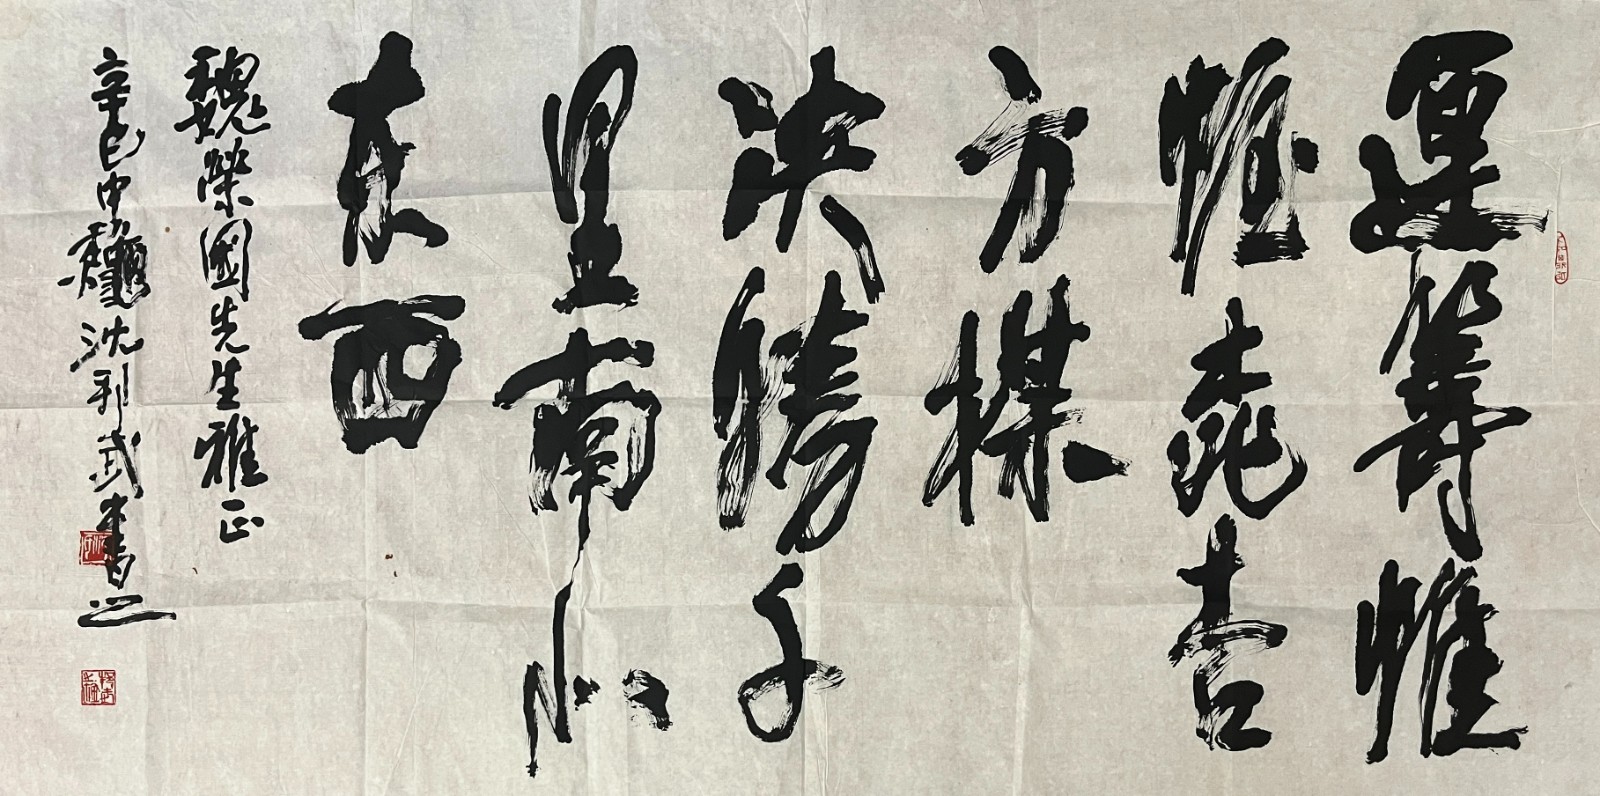 運籌帷
幄吉
方
決勝千
里南北
东西
魏榮國先生雅正
辛巳中龝沈利武書之